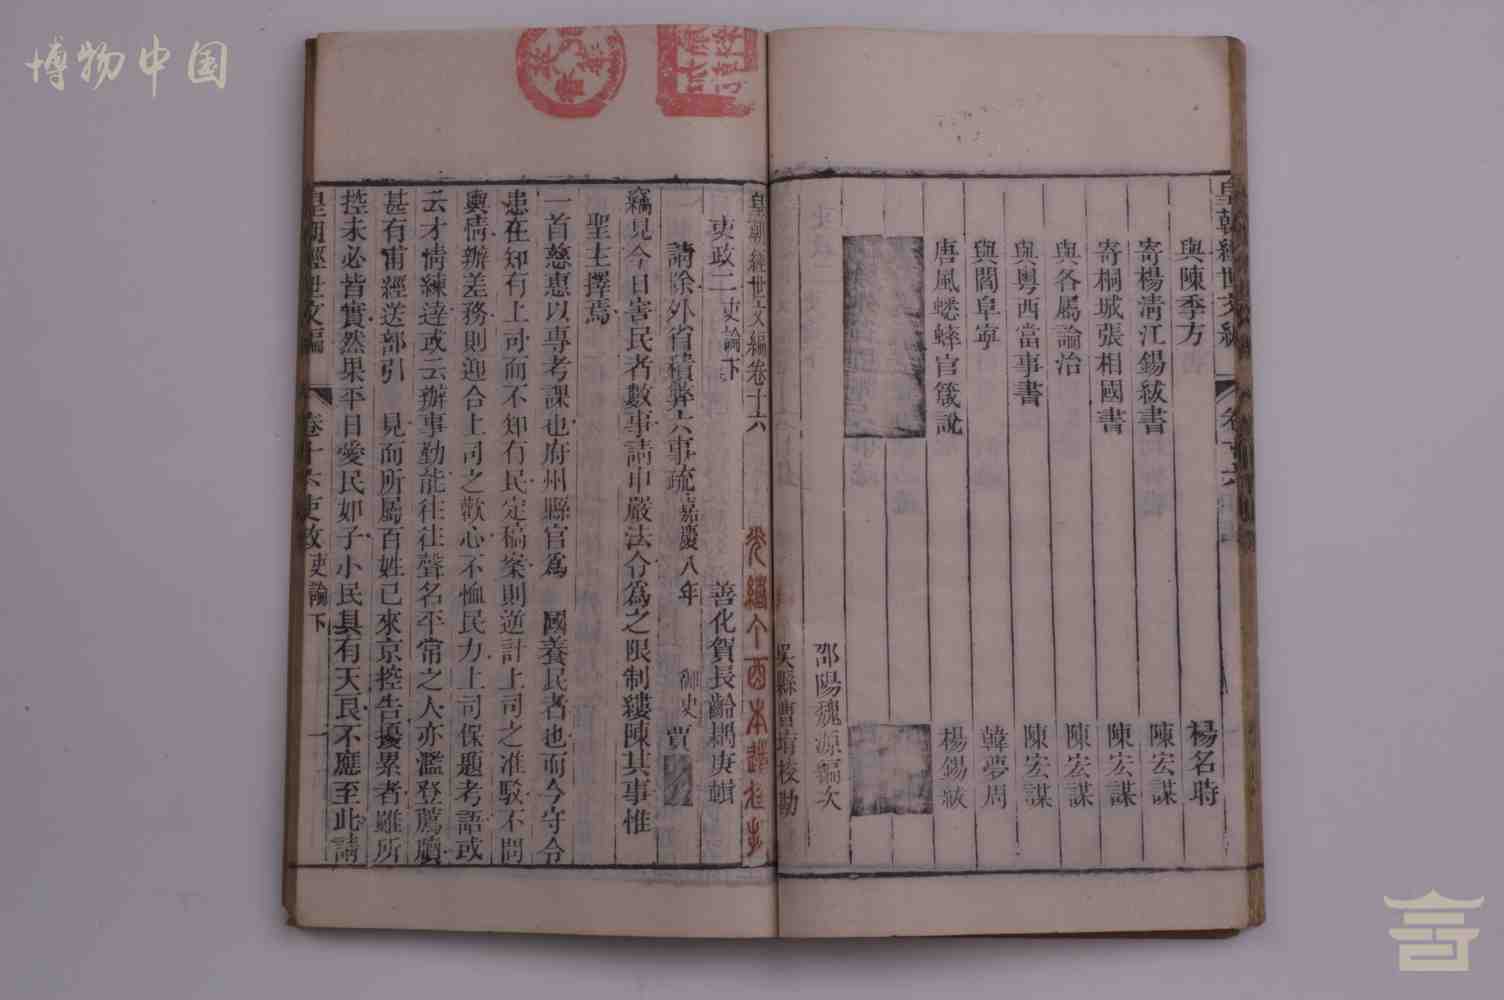 博物中国
皇朝經世文編
與陳季方 楊名時
寄楊清江錫紱書 陳宏謀
寄桐城張相國書 陳宏謀
與各屬論治 陳宏謀
與粵西當事書 陳宏謀
與閻阜寧 韓夢周
唐風蟋蟀官箴說 楊錫紱
邵陽魏源編次
吳縣曹堉校勘
皇朝經世文編卷十六
吏政二吏論下 善化賀長齡耦庚輯
請除外省積弊六事疏嘉慶八年 御史賈
竊見今日害民者數事請申嚴法令爲之限制縷陳其事惟
聖主擇焉
一首慈惠以專考課也府州縣官爲 國養民者也而今守令
患在知有上司而不知有民定稿案則逆計上司之准駁不問
輿情辦差務則迎合上司之歡心不恤民力上司保題考語或
云才情練達或云辦事勤能往往聲名平常之人亦濫登薦牘
甚有甫經送部引 見而所屬百姓已來京控告擾累者雖所
控未必皆實然果平日愛民如子小民具有天良不應至此請
皇朝經世文編 卷十六吏政吏論下 一